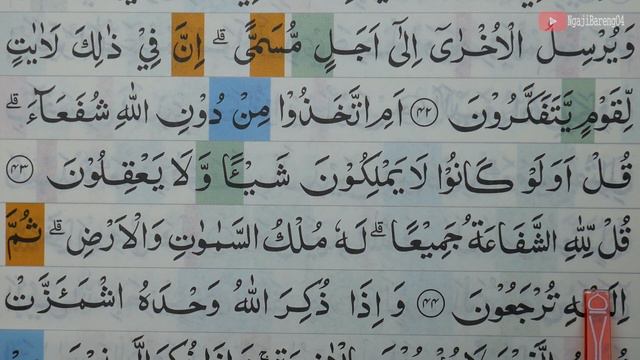 NgajiBareng04
وَيُرْسِلُ الْاُخْرٰٓى اِلٰٓى اَجَلٍ مُّسَمًّىۗ اِنَّ فِيْ ذٰلِكَ لَاٰيٰتٍ
لِّقَوْمٍ يَّتَفَكَّرُوْنَ ﴿٤٢﴾ اَمِ اتَّخَذُوْا مِنْ دُوْنِ اللّٰهِ شُفَعَاۤءَۗ
قُلْ اَوَلَوْ كَانُوْا لَا يَمْلِكُوْنَ شَيْـًٔا وَّلَا يَعْقِلُوْنَ ﴿٤٣﴾
قُلْ لِّلّٰهِ الشَّفَاعَةُ جَمِيْعًاۗ لَهٗ مُلْكُ السَّمٰوٰتِ وَالْاَرْضِۗ ثُمَّ
اِلَيْهِ تُرْجَعُوْنَ ﴿٤٤﴾ وَاِذَا ذُكِرَ اللّٰهُ وَحْدَهُ اشْمَـَٔزَّتْ